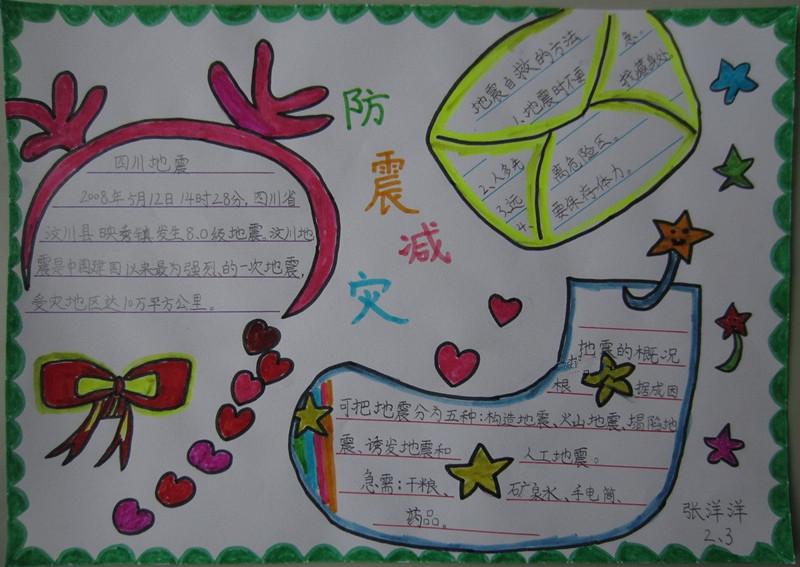 防
震
减
灾
四川地震
2008年5月12日14时28分,四川省
汶川县映秀镇发生8.0级地震。汶川地
震是中国建国以来最为强烈的一次地震,
受灾地区达10万平方公里。
地震自救的方法
1.地震时不要
急。
2.人多先
找藏身处
3.远
离危险区。
4.
要保存体力。
地震的概况
根 据成因
可把地震分为五种:构造地震、火山地震、塌陷地
震、诱发地震和 人工地震。
急需:干粮、 矿泉水、手电筒、
药品。
张洋洋
2、3